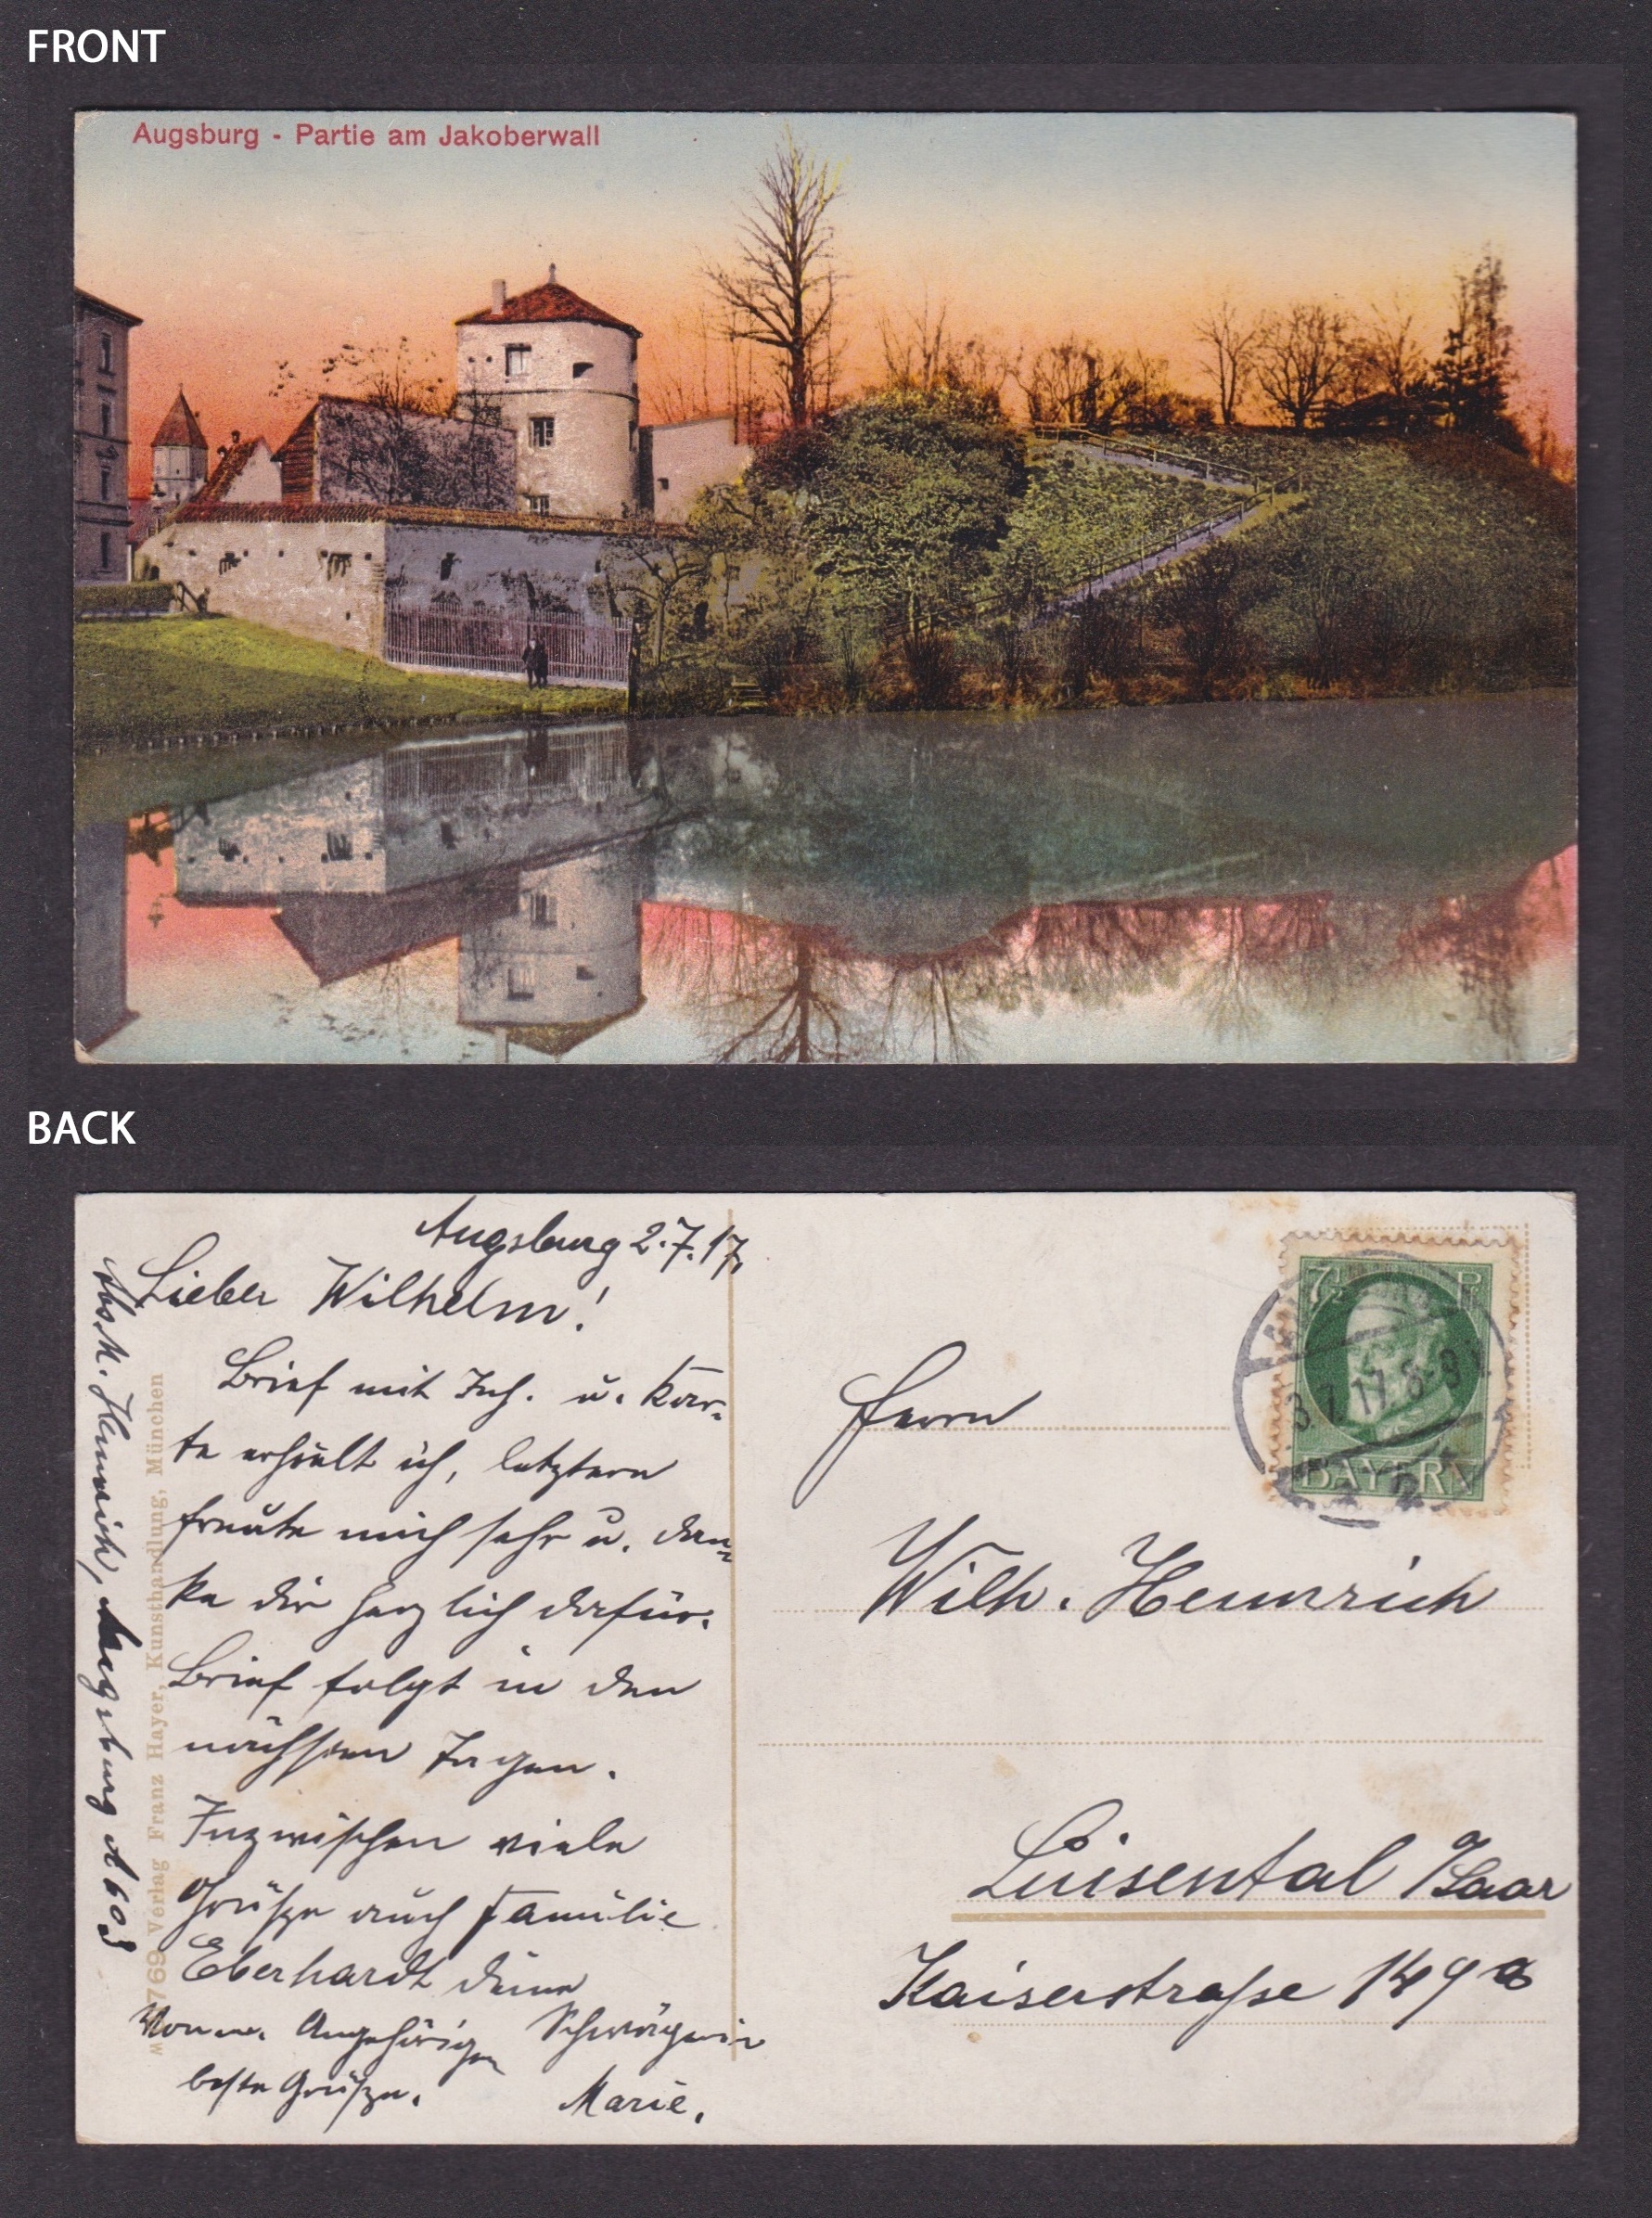 FRONT
Augsburg - Partie am Jakoberwall
BACK
Augsburg 2.7.17.
Lieber Wilhelm!
Brief mit Inh. u. Kar-
te erhielt ich, letztere
freute mich sehr u. dan-
ke dir herzlich dafür.
Brief folgt in den
nächsten Tagen.
Inzwischen viele
Grüße auch Familie
Eberhardt deine
Von m. Angehörigen Schwägerin
beste Grüße. Marie.
Abs. M. Hennrich, Augsburg A 603
W 769 Verlag Franz Hayer, Kunsthandlung, München
7½ Pf
BAYERN
3.7.17. 8-9
Herrn
Wilh. Hennrich
Luisental /Saar
Kaiserstraße 149a